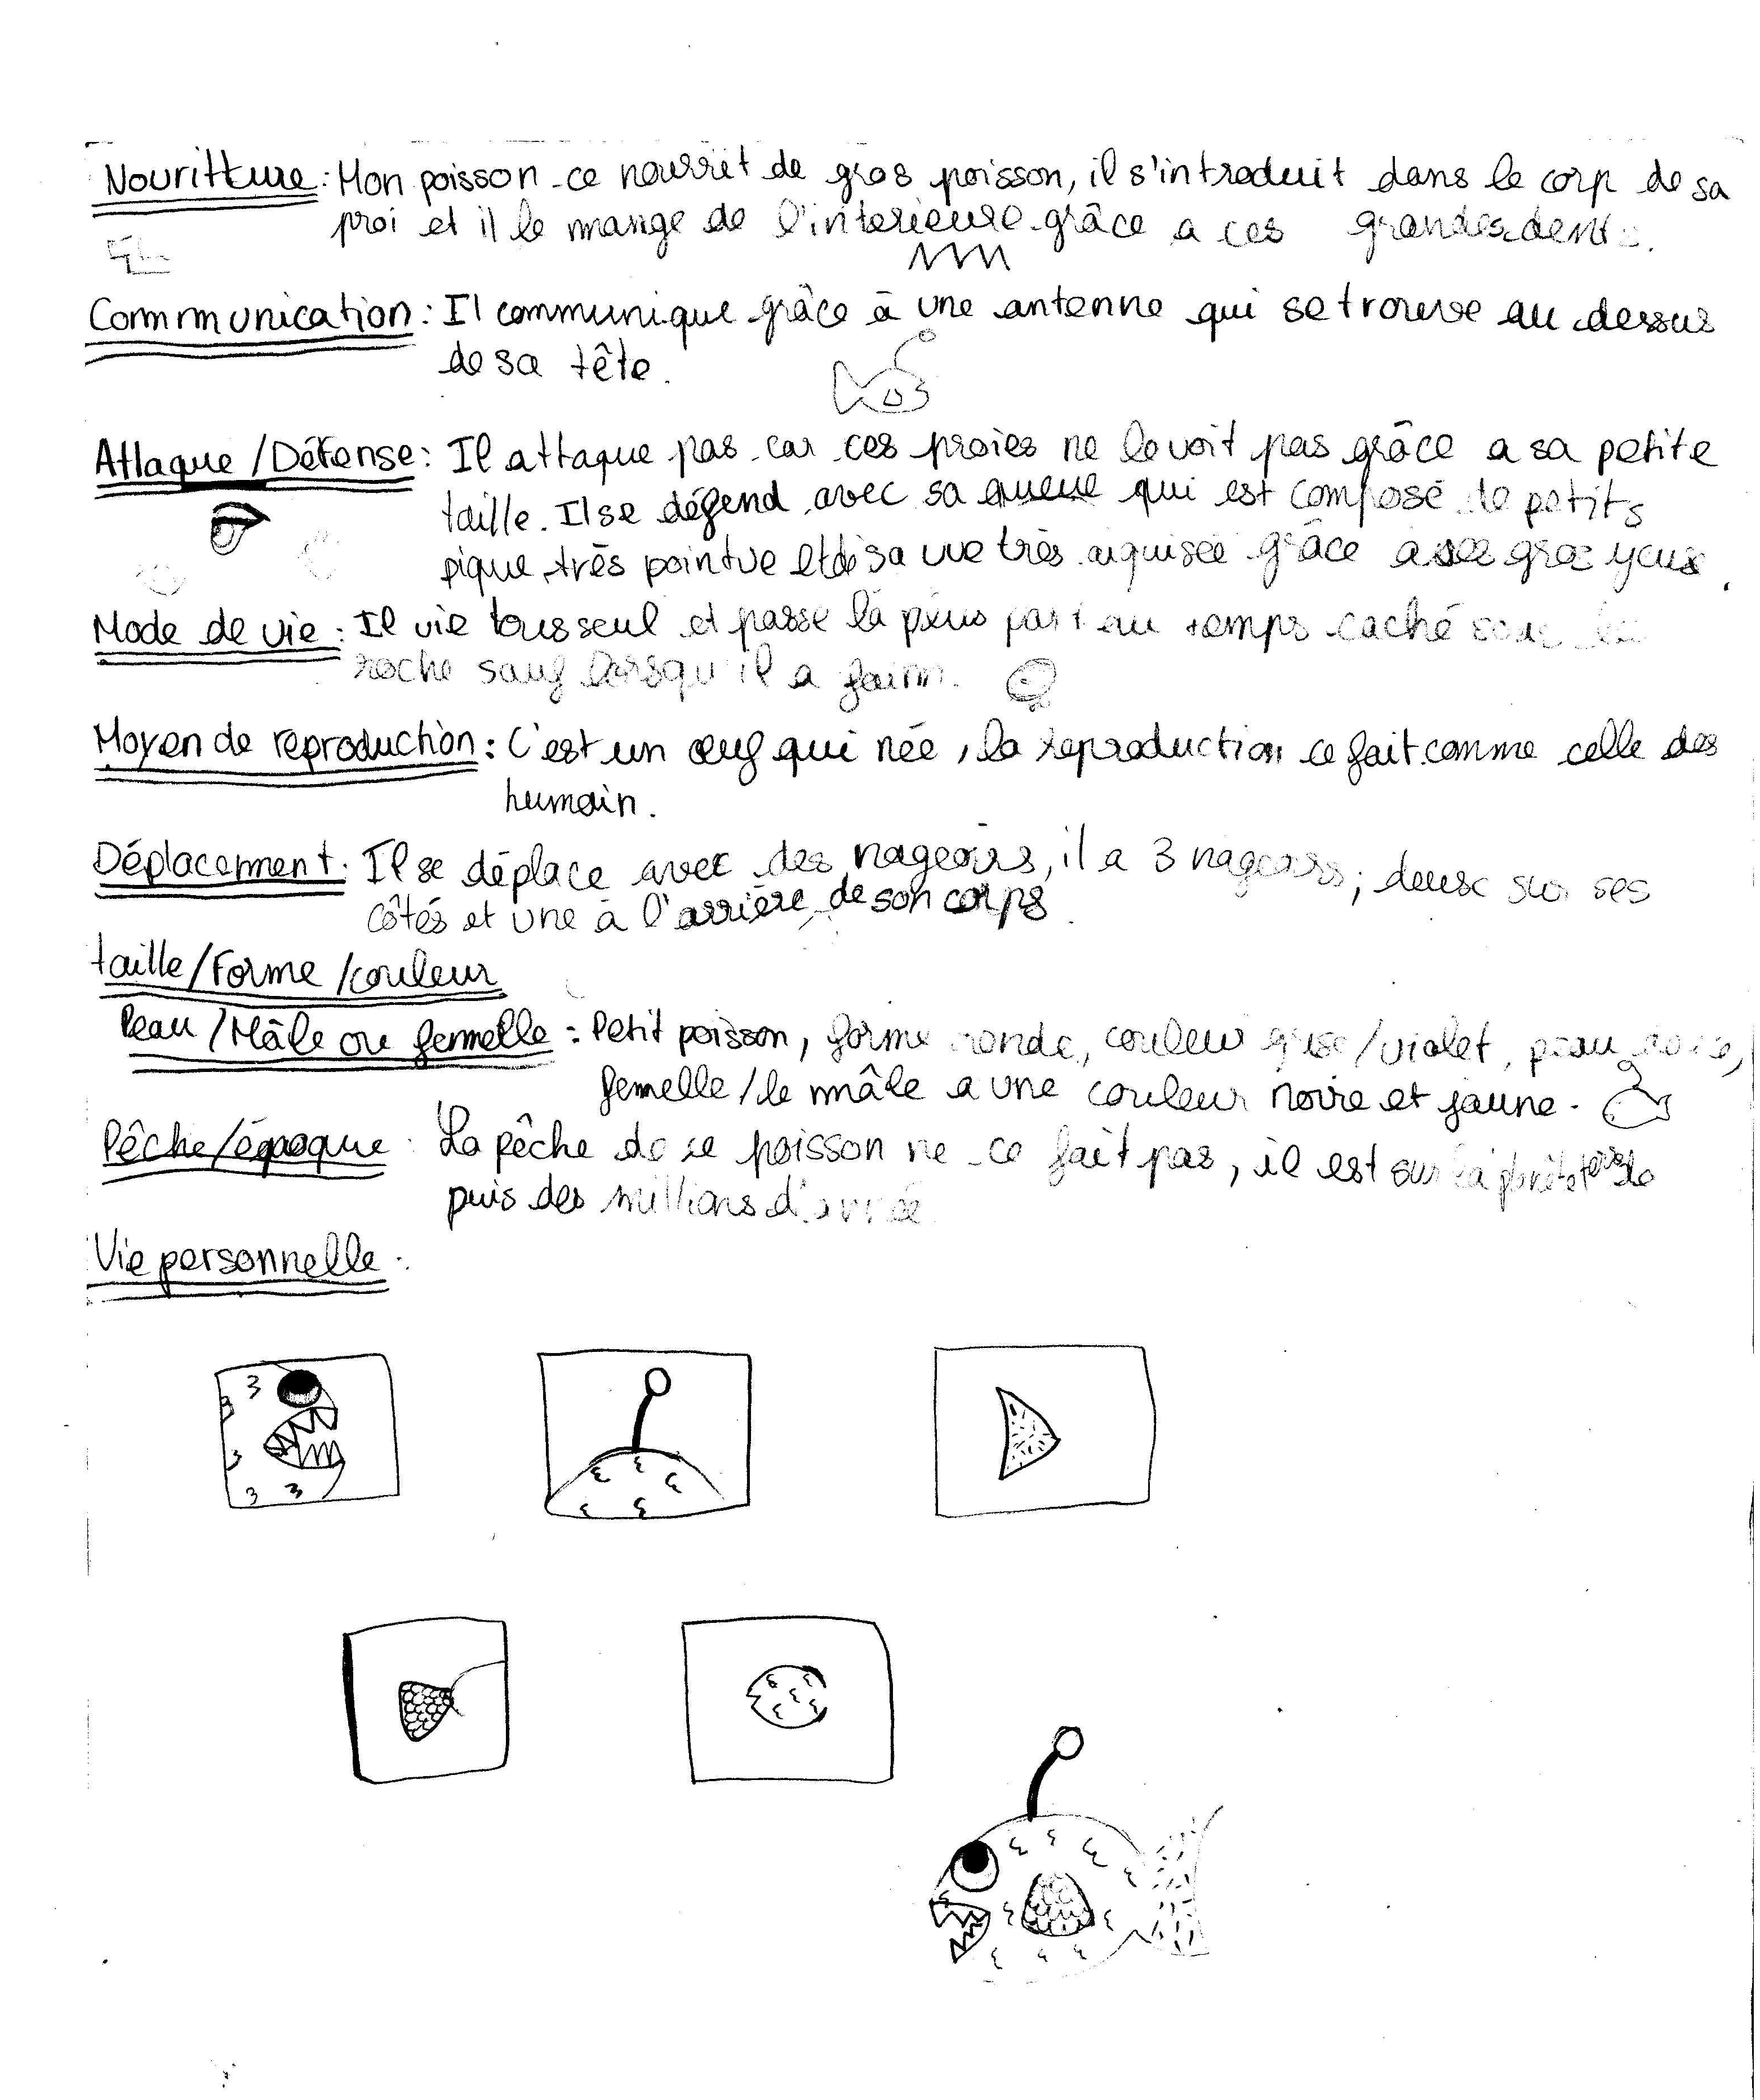 Nouritture : Mon poisson ce nourrit de gros poisson, il s'introduit dans le corp de sa
proi et il le mange de l'interieure grâce a ces grandes dents.
Communication : Il communique grâce à une antenne qui se trouve au dessus
de sa tête.
Attaque / Défense : Il attaque pas car ces proies ne le voit pas grâce a sa petite
taille. Il se défend avec sa queue qui est composé de petits
pique très pointue et de sa vue très aiguisée grâce a gros yeux.
Mode de vie : Il vie tous seul et passe la plus part du temps caché sous
roche sauf lorsqu'il a faim.
Moyen de reproduction : C'est un œuf qui née, la reproduction ce fait comme celle des
humain.
Déplacement : Il se déplace avec des nageoirs, il a 3 nageoirs ; deux sur ses
côtés et une à l'arrière de son corps.
taille / Forme / couleur
Peau / Mâle ou femelle : Petit poisson, forme ronde, couleur grise / violet, peau
femelle / le mâle a une couleur noire et jaune.
Pêche / époque : La pêche de ce poisson ne ce fait pas, il est sur la de
puis des millions d'année
Vie personnelle :